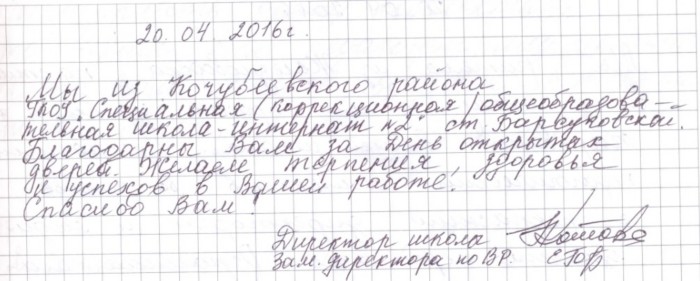 20 04 2016г.
Мы из Кочубеевского района
ГКОУ "Специальная (коррекционная) общеобразова-
тельная школа-интернат №2" ст. Барсуковской.
Благодарны Вам за День открытых
дверей. Желаем терпения, здоровья
и успехов в Вашей работе.
Спасибо Вам!
Директор школа
Зам. директора по ВР.